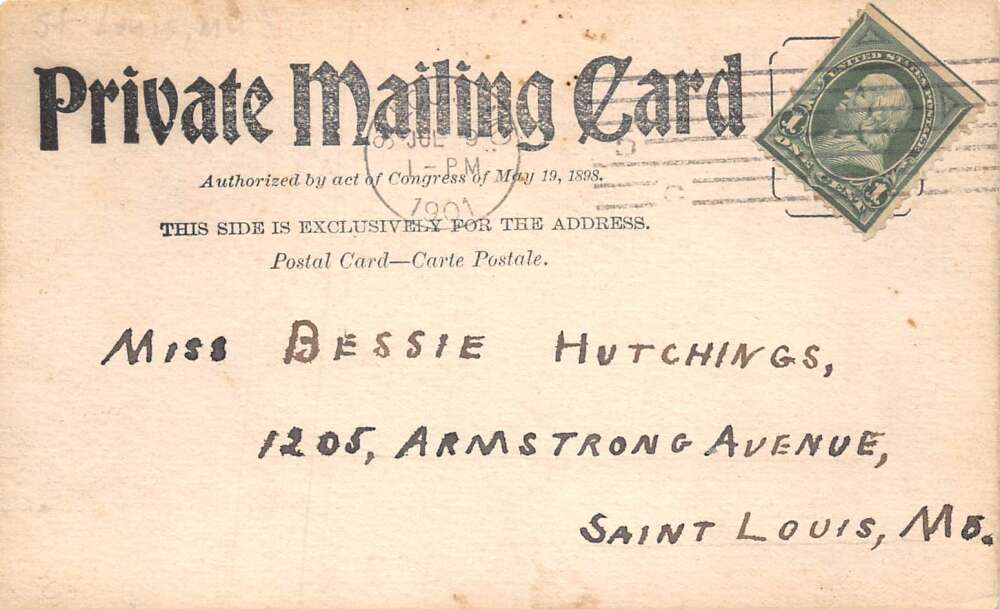 St. Louis, Mo
Private Mailing Card
UNITED STATES POSTAGE
1 ONE CENT 1
JUL 9
1-PM
1901
Authorized by act of Congress of May 19, 1898.
THIS SIDE IS EXCLUSIVELY FOR THE ADDRESS.
Postal Card—Carte Postale.
Miss BESSIE HUTCHINGS,
1205, ARMSTRONG AVENUE,
SAINT LOUIS, MO.